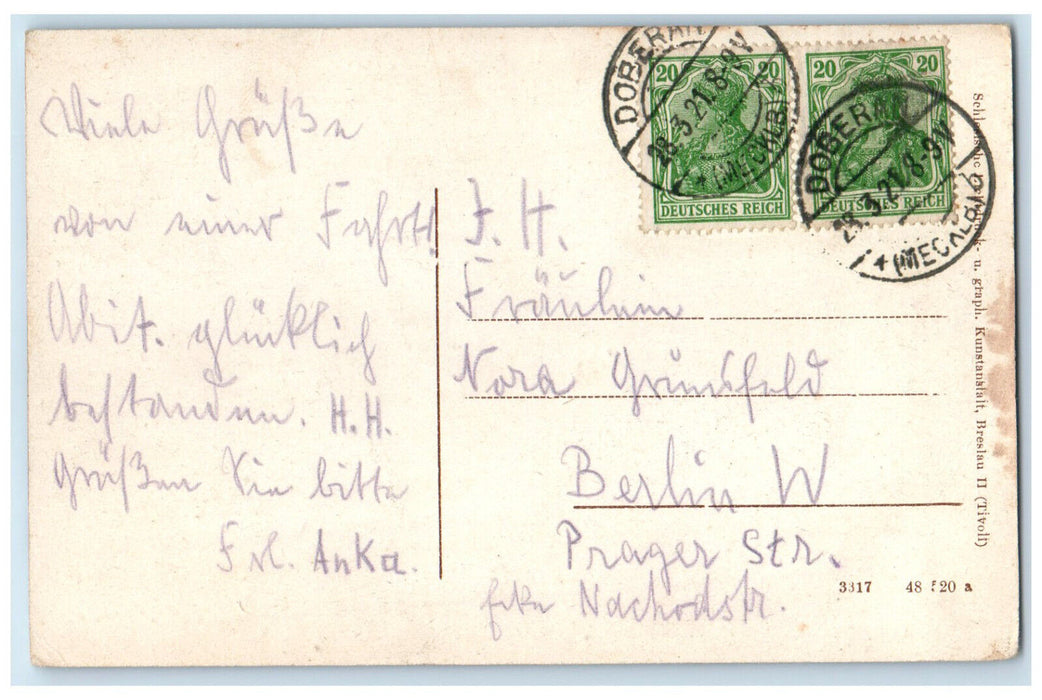 Viele Grüße
von einer Fahrt!
Abit. glücklich
bestanden. H.H.
Grüßen Sie bitte
Frl. Anka.
DOBERAN
28.3.21.8-9V
(MECKLB)
DOBERAN
28.3.21.8-9V
(MECKLB)
20 20
DEUTSCHES REICH
20 20
DEUTSCHES REICH
J. H.
Fräulein
Nora Grünfeld
Berlin W
Prager Str.
Ecke Nachodstr.
u. graph. Kunstanstalt, Breslau II (Tivoli)
3317 48 520 a